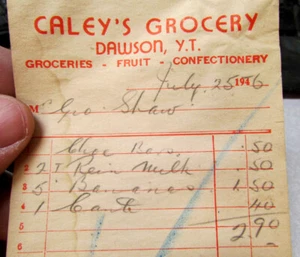 CALEY'S GROCERY
DAWSON, Y.T.
GROCERIES - FRUIT - CONFECTIONERY
July 25 1946
M Geo Shaw
1 .50
2 2 Milk .50
3 5 Bananas 1.50
4 1 .40
5 2.90
6